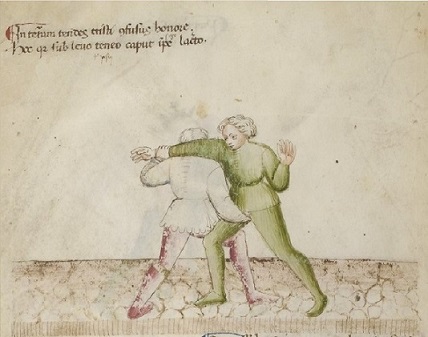 En terrā tendes tristi ꝯfusus honore.
Hoc qꝛ sub leuo teneo caput ip̄e lacͭo.